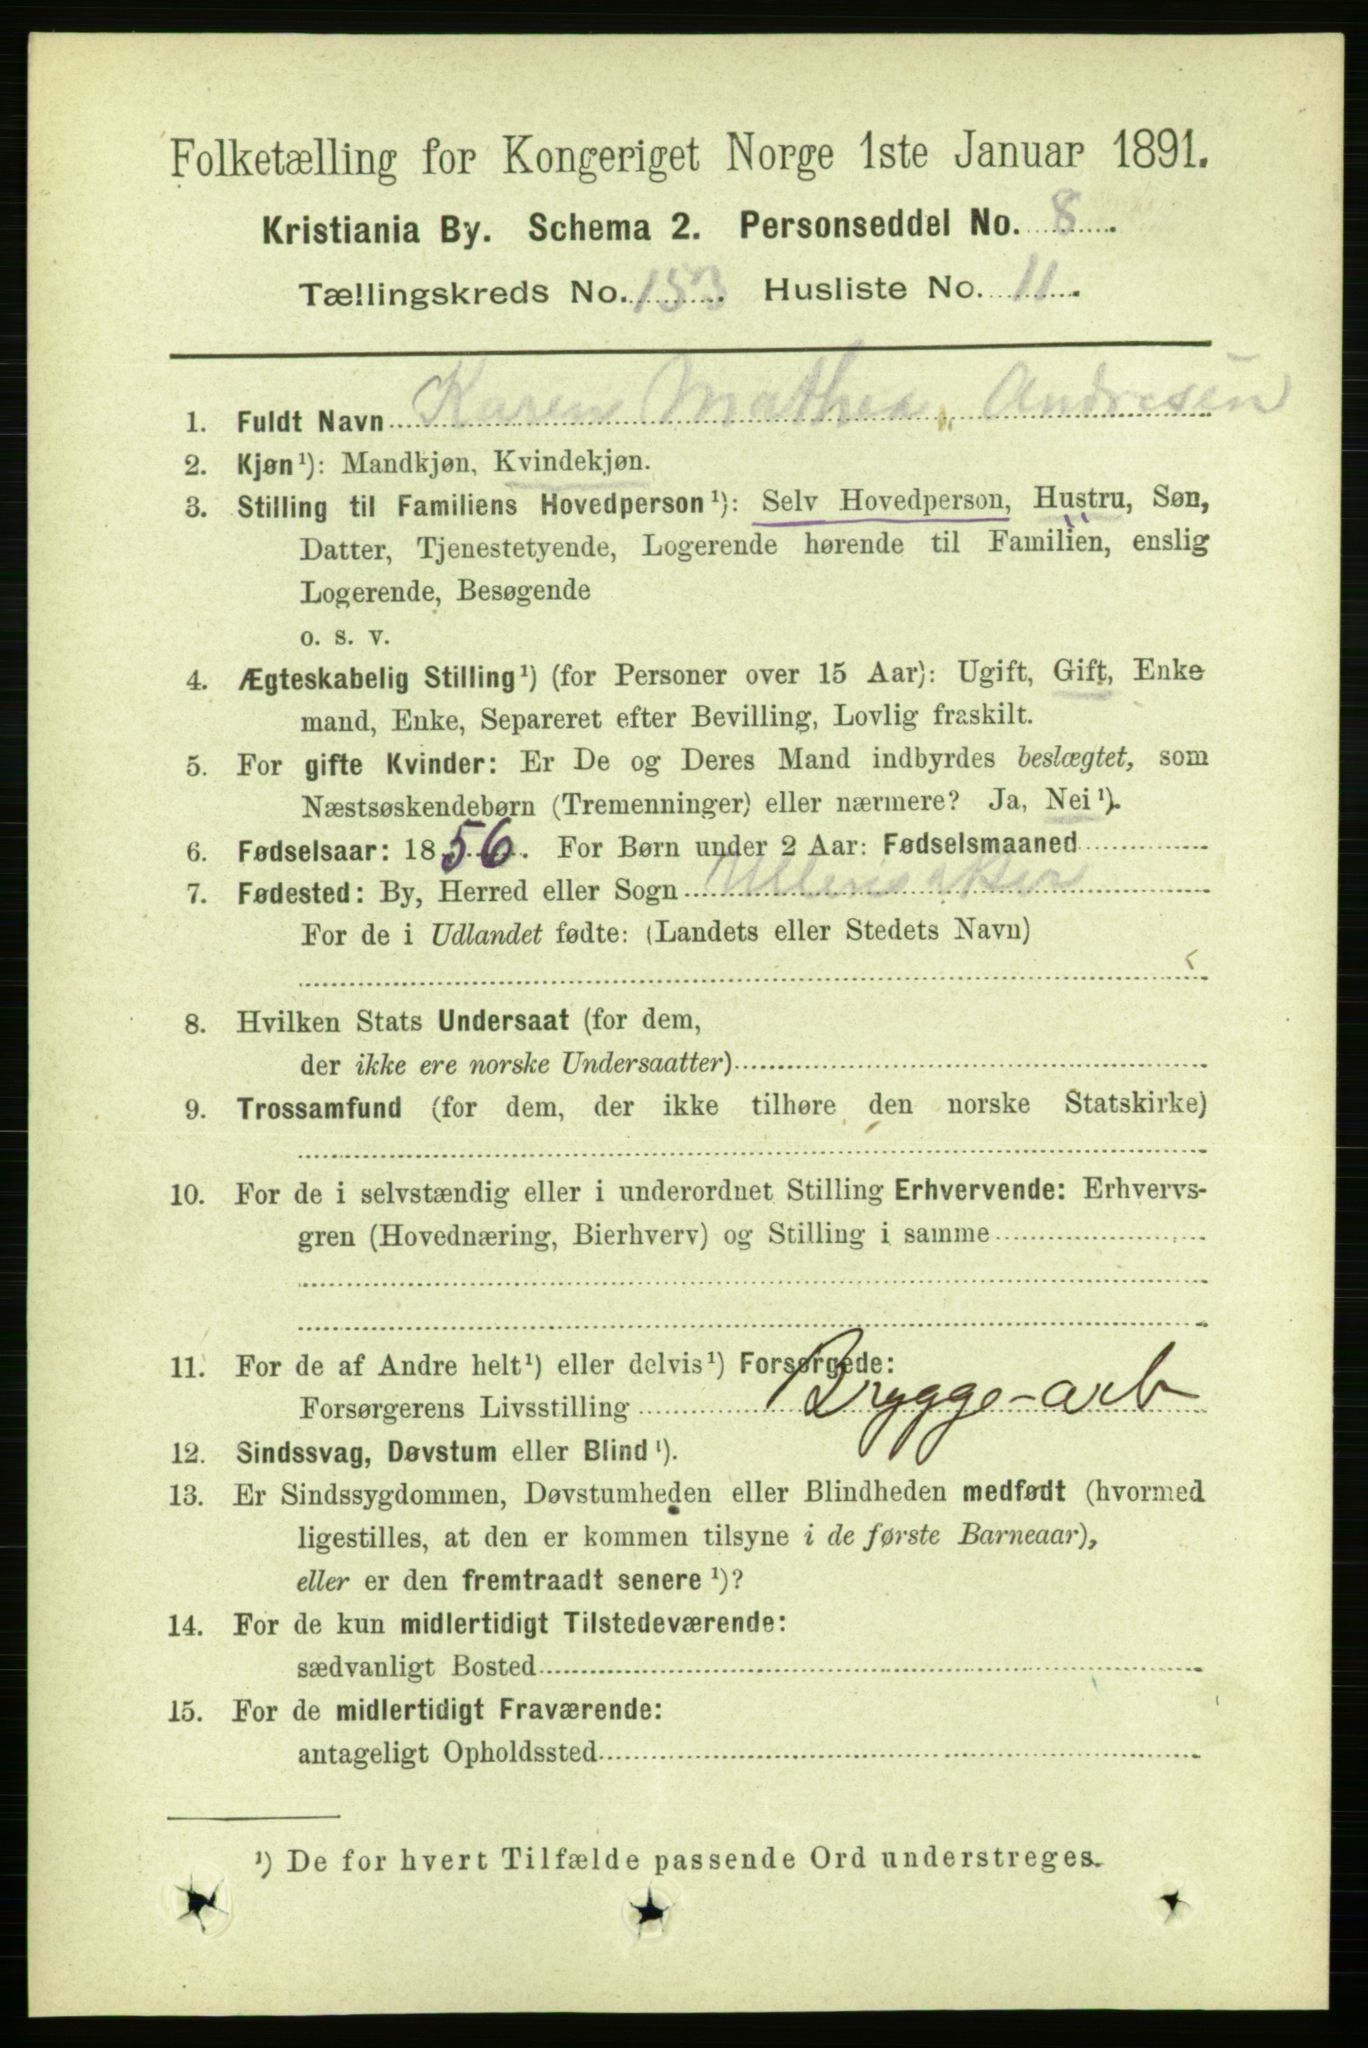 Folketælling for Kongeriget Norge 1ste Januar 1891.
Kristiania By. Schema 2. Personseddel No. 8.
Tællingskreds No. 153. Husliste No. 11.
1. Fuldt Navn Karen Mathea Andresen
2. Kjøn¹): Mandkjøn, Kvindekjøn.
3. Stilling til Familiens Hovedperson¹): Selv Hovedperson, Hustru, Søn,
Datter, Tjenestetyende, Logerende hørende til Familien, enslig
Logerende, Besøgende
o. s. v.
4. Ægteskabelig Stilling¹) (for Personer over 15 Aar): Ugift, Gift, Enke
mand, Enke, Separeret efter Bevilling, Lovlig fraskilt.
5. For gifte Kvinder: Er De og Deres Mand indbyrdes beslægtet, som
Næstsøskendebørn (Tremenninger) eller nærmere? Ja, Nei¹).
6. Fødselsaar: 1856. For Børn under 2 Aar: Fødselsmaaned
7. Fødested: By, Herred eller Sogn Ullensaker
For de i Udlandet fødte: (Landets eller Stedets Navn)
8. Hvilken Stats Undersaat (for dem,
der ikke ere norske Undersaatter)
9. Trossamfund (for dem, der ikke tilhøre den norske Statskirke)
10. For de i selvstændig eller i underordnet Stilling Erhvervende: Erhvervs-
gren (Hovednæring, Bierhverv) og Stilling i samme
11. For de af Andre helt¹) eller delvis¹) Forsørgede:
Forsørgerens Livsstilling Brygge-arb
12. Sindssvag, Døvstum eller Blind¹).
13. Er Sindssygdommen, Døvstumheden eller Blindheden medfødt (hvormed
ligestilles, at den er kommen tilsyne i de første Barneaar),
eller er den fremtraadt senere¹)?
14. For de kun midlertidigt Tilstedeværende:
sædvanligt Bosted
15. For de midlertidigt Fraværende:
antageligt Opholdssted
¹) De for hvert Tilfælde passende Ord understreges.